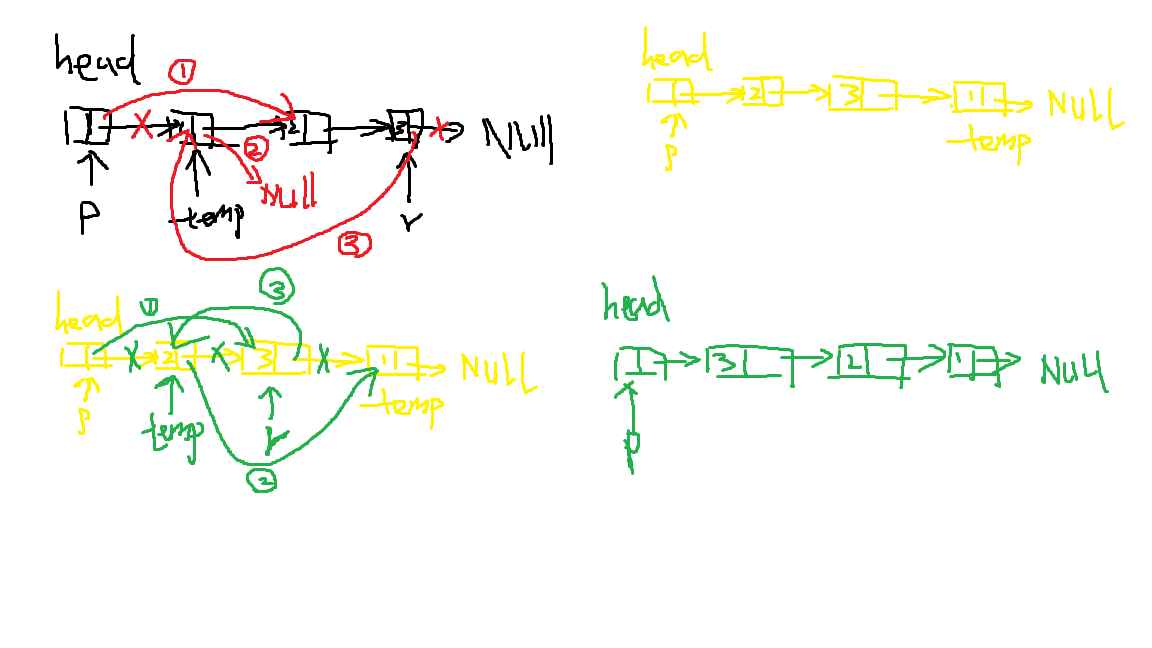 head
①
1 2 3 NUll
②
Null
P temp r
③
head
2 3 1 NUll
P temp
③
head ①
2 3 1 NUll
P temp r temp
②
head
3 2 1 NUll
p